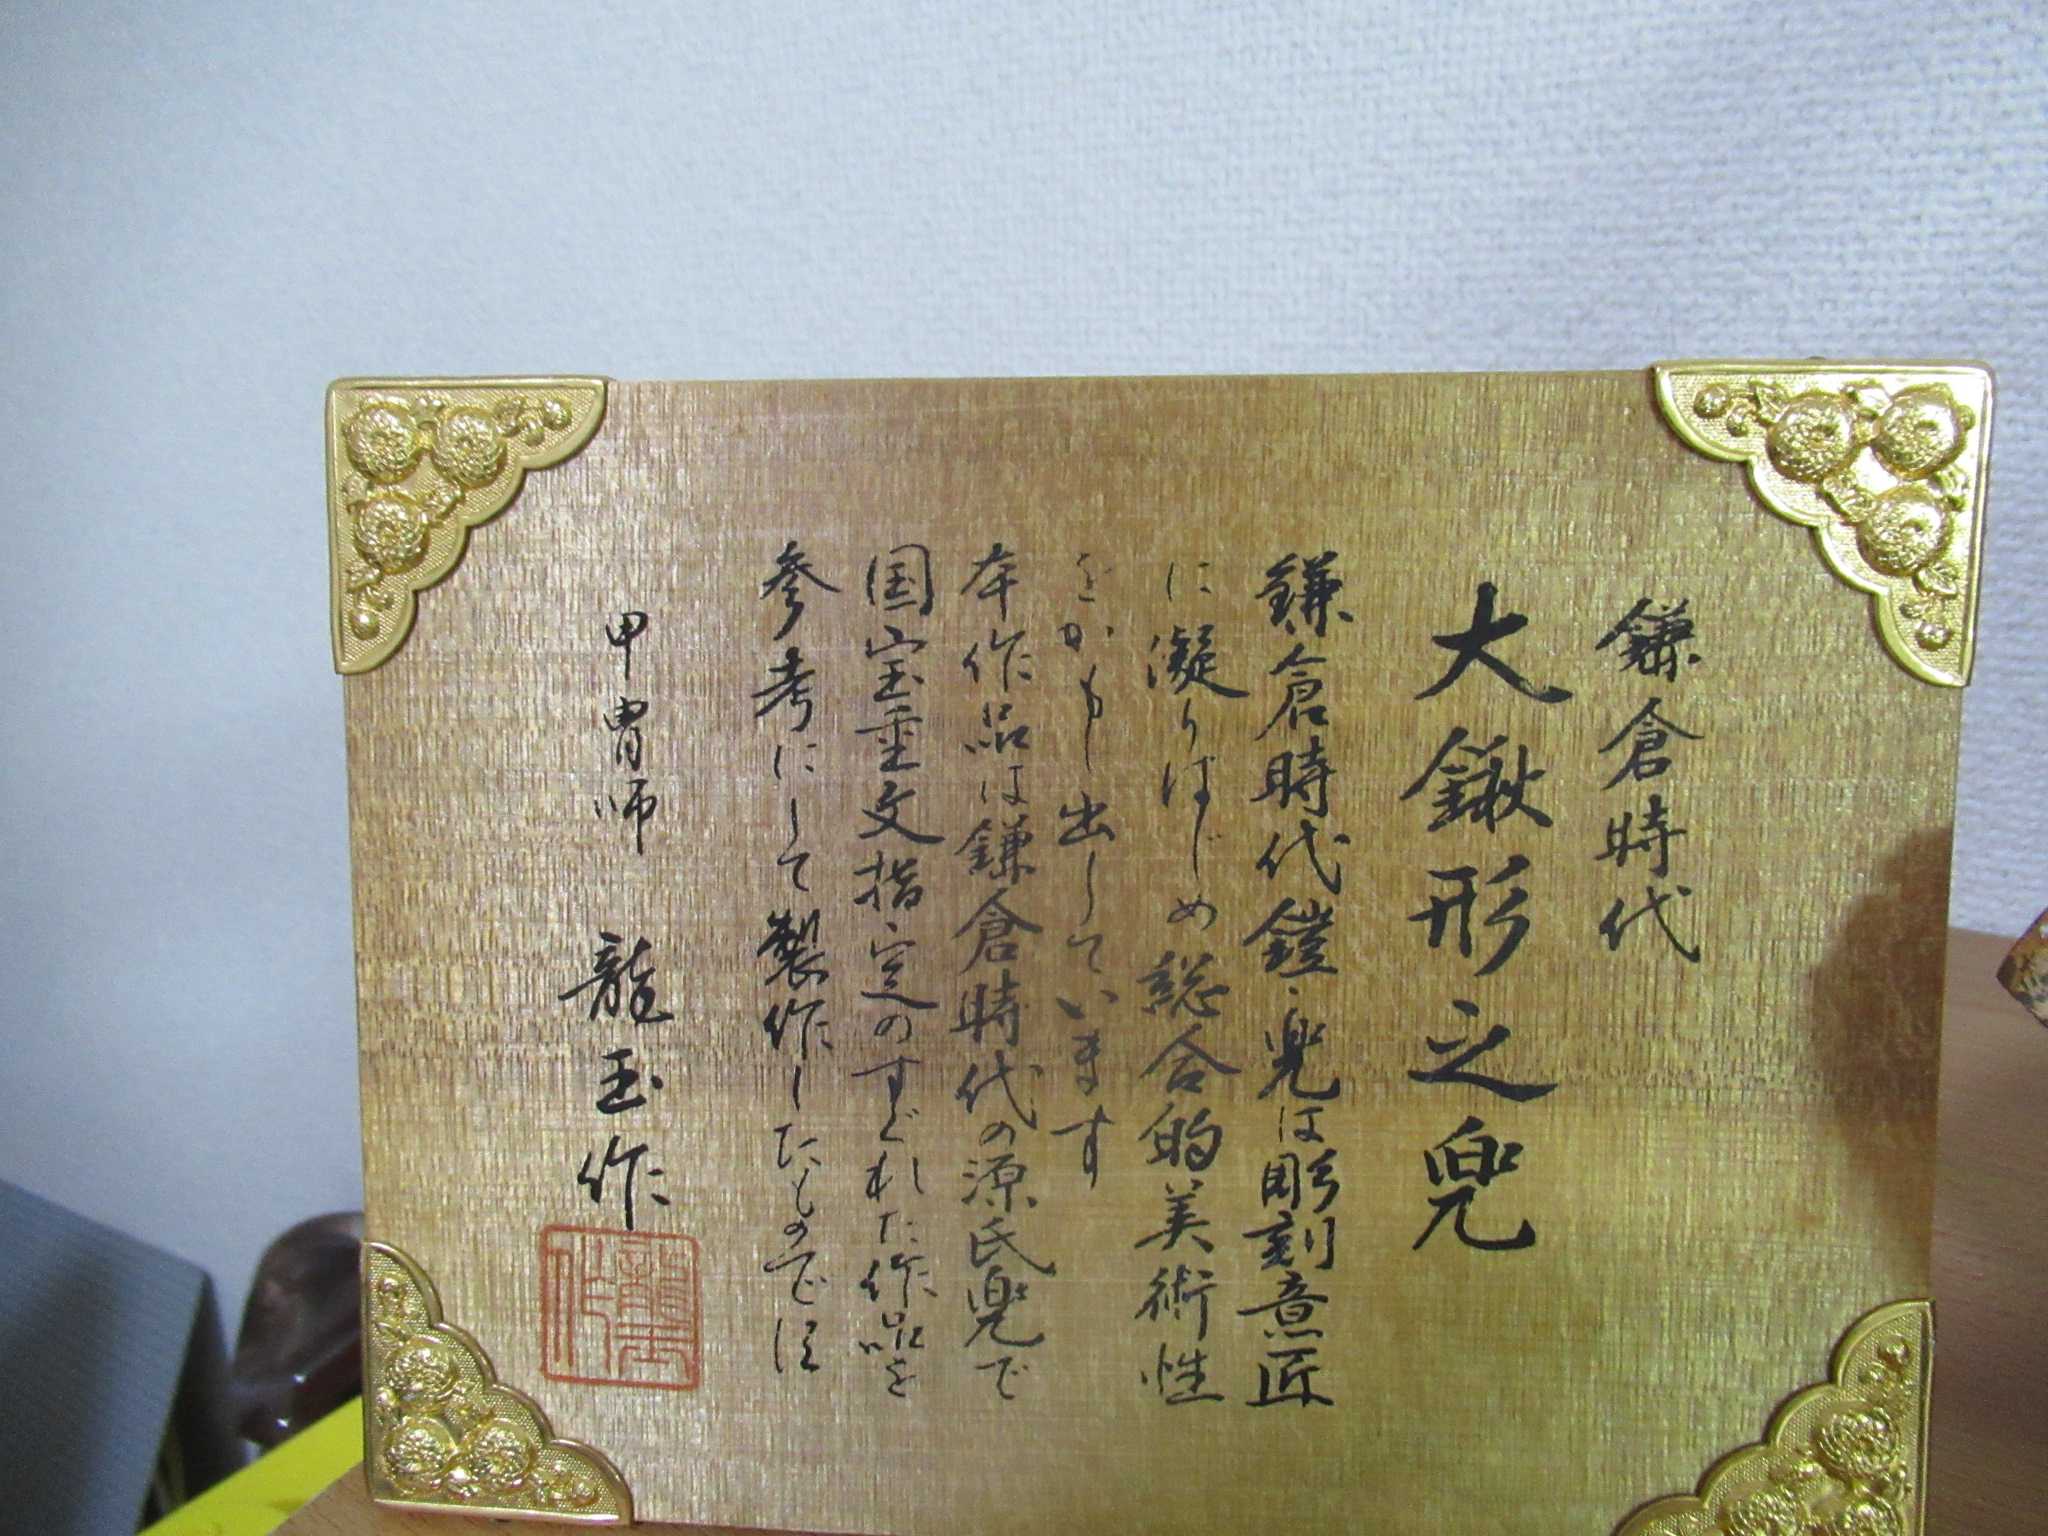 鎌倉時代
大鍬形之兜
鎌倉時代鎧、兜は彫刻意匠
に凝りはじめ総合的美術性
をかもし出しています
本作品は鎌倉時代の源氏兜で
国宝重文指定のすぐれた作品を
参考にして製作したもので
甲冑師 龍玉作
龍玉作